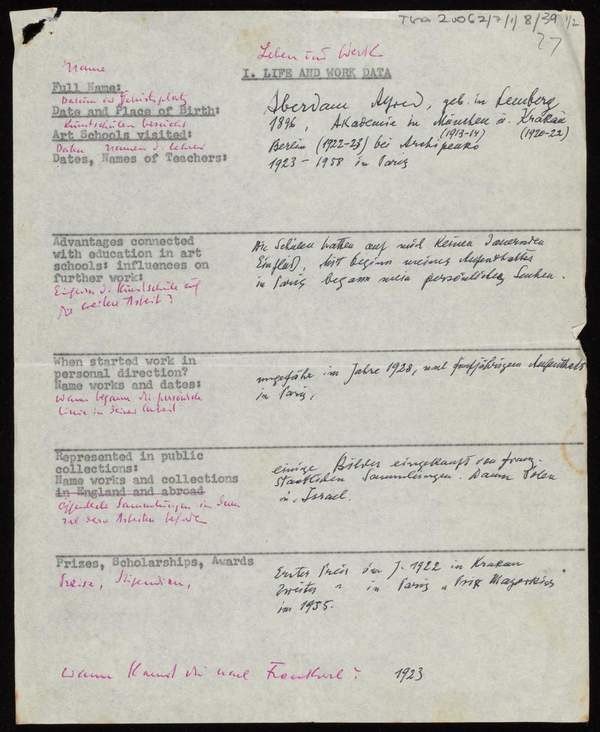 TGA 20062/7/1/8/39 1/2
27
Leben und Werk
I. LIFE AND WORK DATA
Name
Full Name:
Datum u Geburtsplatz
Date and Place of Birth:
Kunstschulen besucht
Art Schools visited:
Daten Namen d. Lehrer
Dates, Names of Teachers:
Aberdam Alfred, geb. in Lemberg
1896, Akademie in München u. Krakau
(1913-14) (1920-22)
Berlin (1922-23) bei Archipenko
1923 - 1958 in Paris
Advantages connected
with education in art
schools: influences on
further work:
Einfluss d. Kunstschule auf
die weitere Arbeit?
Die Schulen hatten auf mich keinen dauernden
Einfluß, Mit Beginn meines Aufenthaltes
in Paris begann mein persönliches Suchen.
When started work in
personal direction?
Name works and dates:
Wann begann die persönliche
Linie in Arbeit
ungefähr im Jahre 1928, nach fünfjährigem Aufenthalt
in Paris,
Represented in public
collections:
Name works and collections
in England and abroad
Öffentliche Sammlungen in denen
Arbeiten
einige Bilder eingekauft von franz.
staatlichen Sammlungen. Dann Polen
u. Israel.
Prizes, Scholarships, Awards
Preise, Stipendien,
Erster Preis im J. 1922 in Krakau
Zweiter " in Paris "Prix
im 1955.
Wann kamst du nach Frankreich? 1923